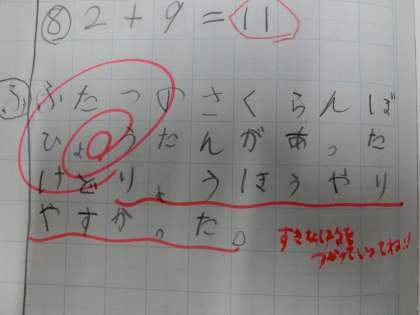 ⑧ 2+9=11
ふ ふたつのさくらんぼ
ひょうたんがあった
けどりょうほうやり
やすかった。
すきなほうを
つかっていってね!!